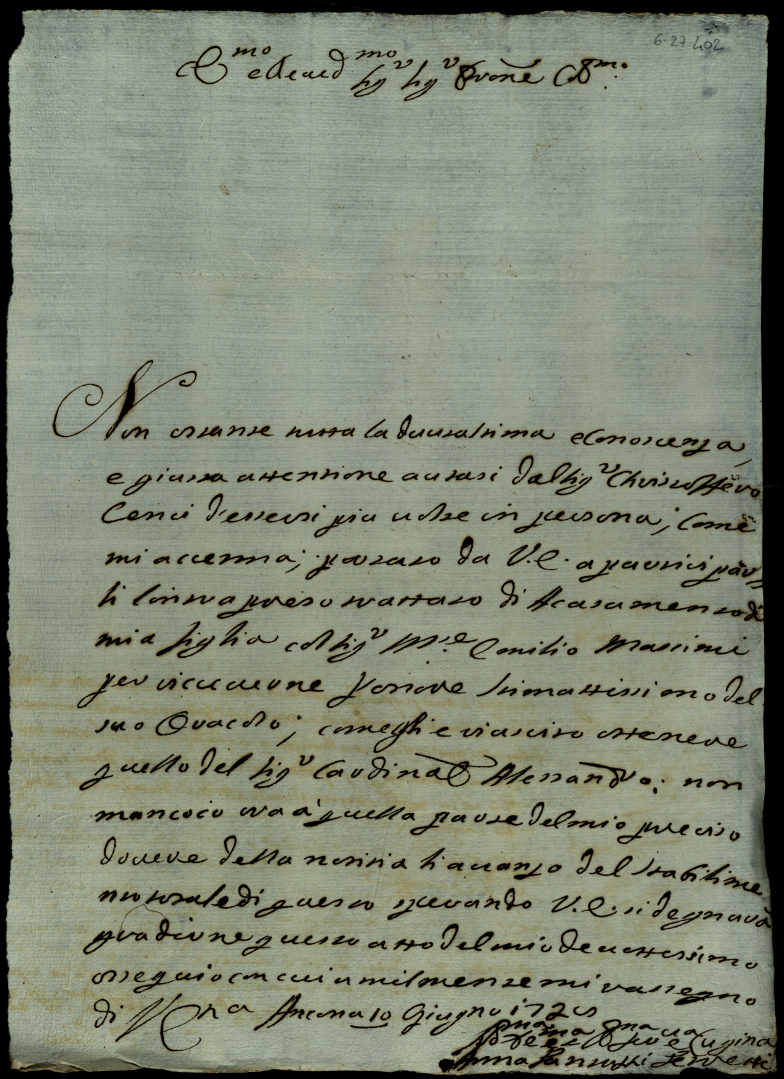 6-27-402
Em.mo e Rev.d mo Sig.r Sig.r Prone C mo
Non ostante tutta la dovutasima e conoscenza,
e giusta attentione a usasi dal Sig.r Christofferο
Cenci d'essersi piu volte in persona; come
mi accenna; portato da V.E. a partecipar
li l'intrapreso trattato di Acasamento di
mia figlia col Sig.r M.se Emilio Massimi
per riceverne l'onore stimatissimo del
suo Oracolo; comegli e riuscito ottenere
quello del Sig.r Cardinal Alessandro; non
manco io ora à quella parte del mio preciso
dovere della notitia li avanzo del stabilime
nto totale di questo sperando V.E. si degnarà
gradirne questo atto del mio devotissimo
osseguio con cui umilmente mi rassegno
di V.E.na Ancona 10 Giugno 172
Cugina
Anna